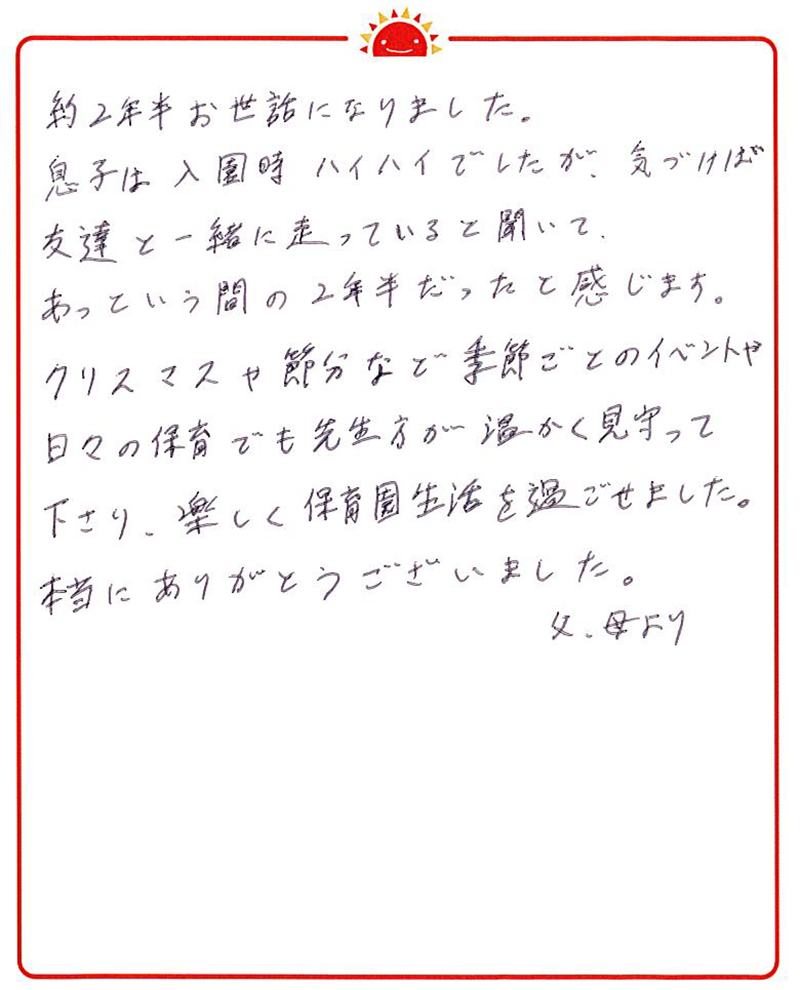 約2年半お世話になりました。
息子は入園時ハイハイでしたが、気づけば
友達と一緒に走っていると聞いて、
あっという間の2年半だったと感じます。
クリスマスや節分など季節ごとのイベントや
日々の保育でも先生方が温かく見守って
下さり、楽しく保育園生活を過ごせました。
本当にありがとうございました。
父、母より